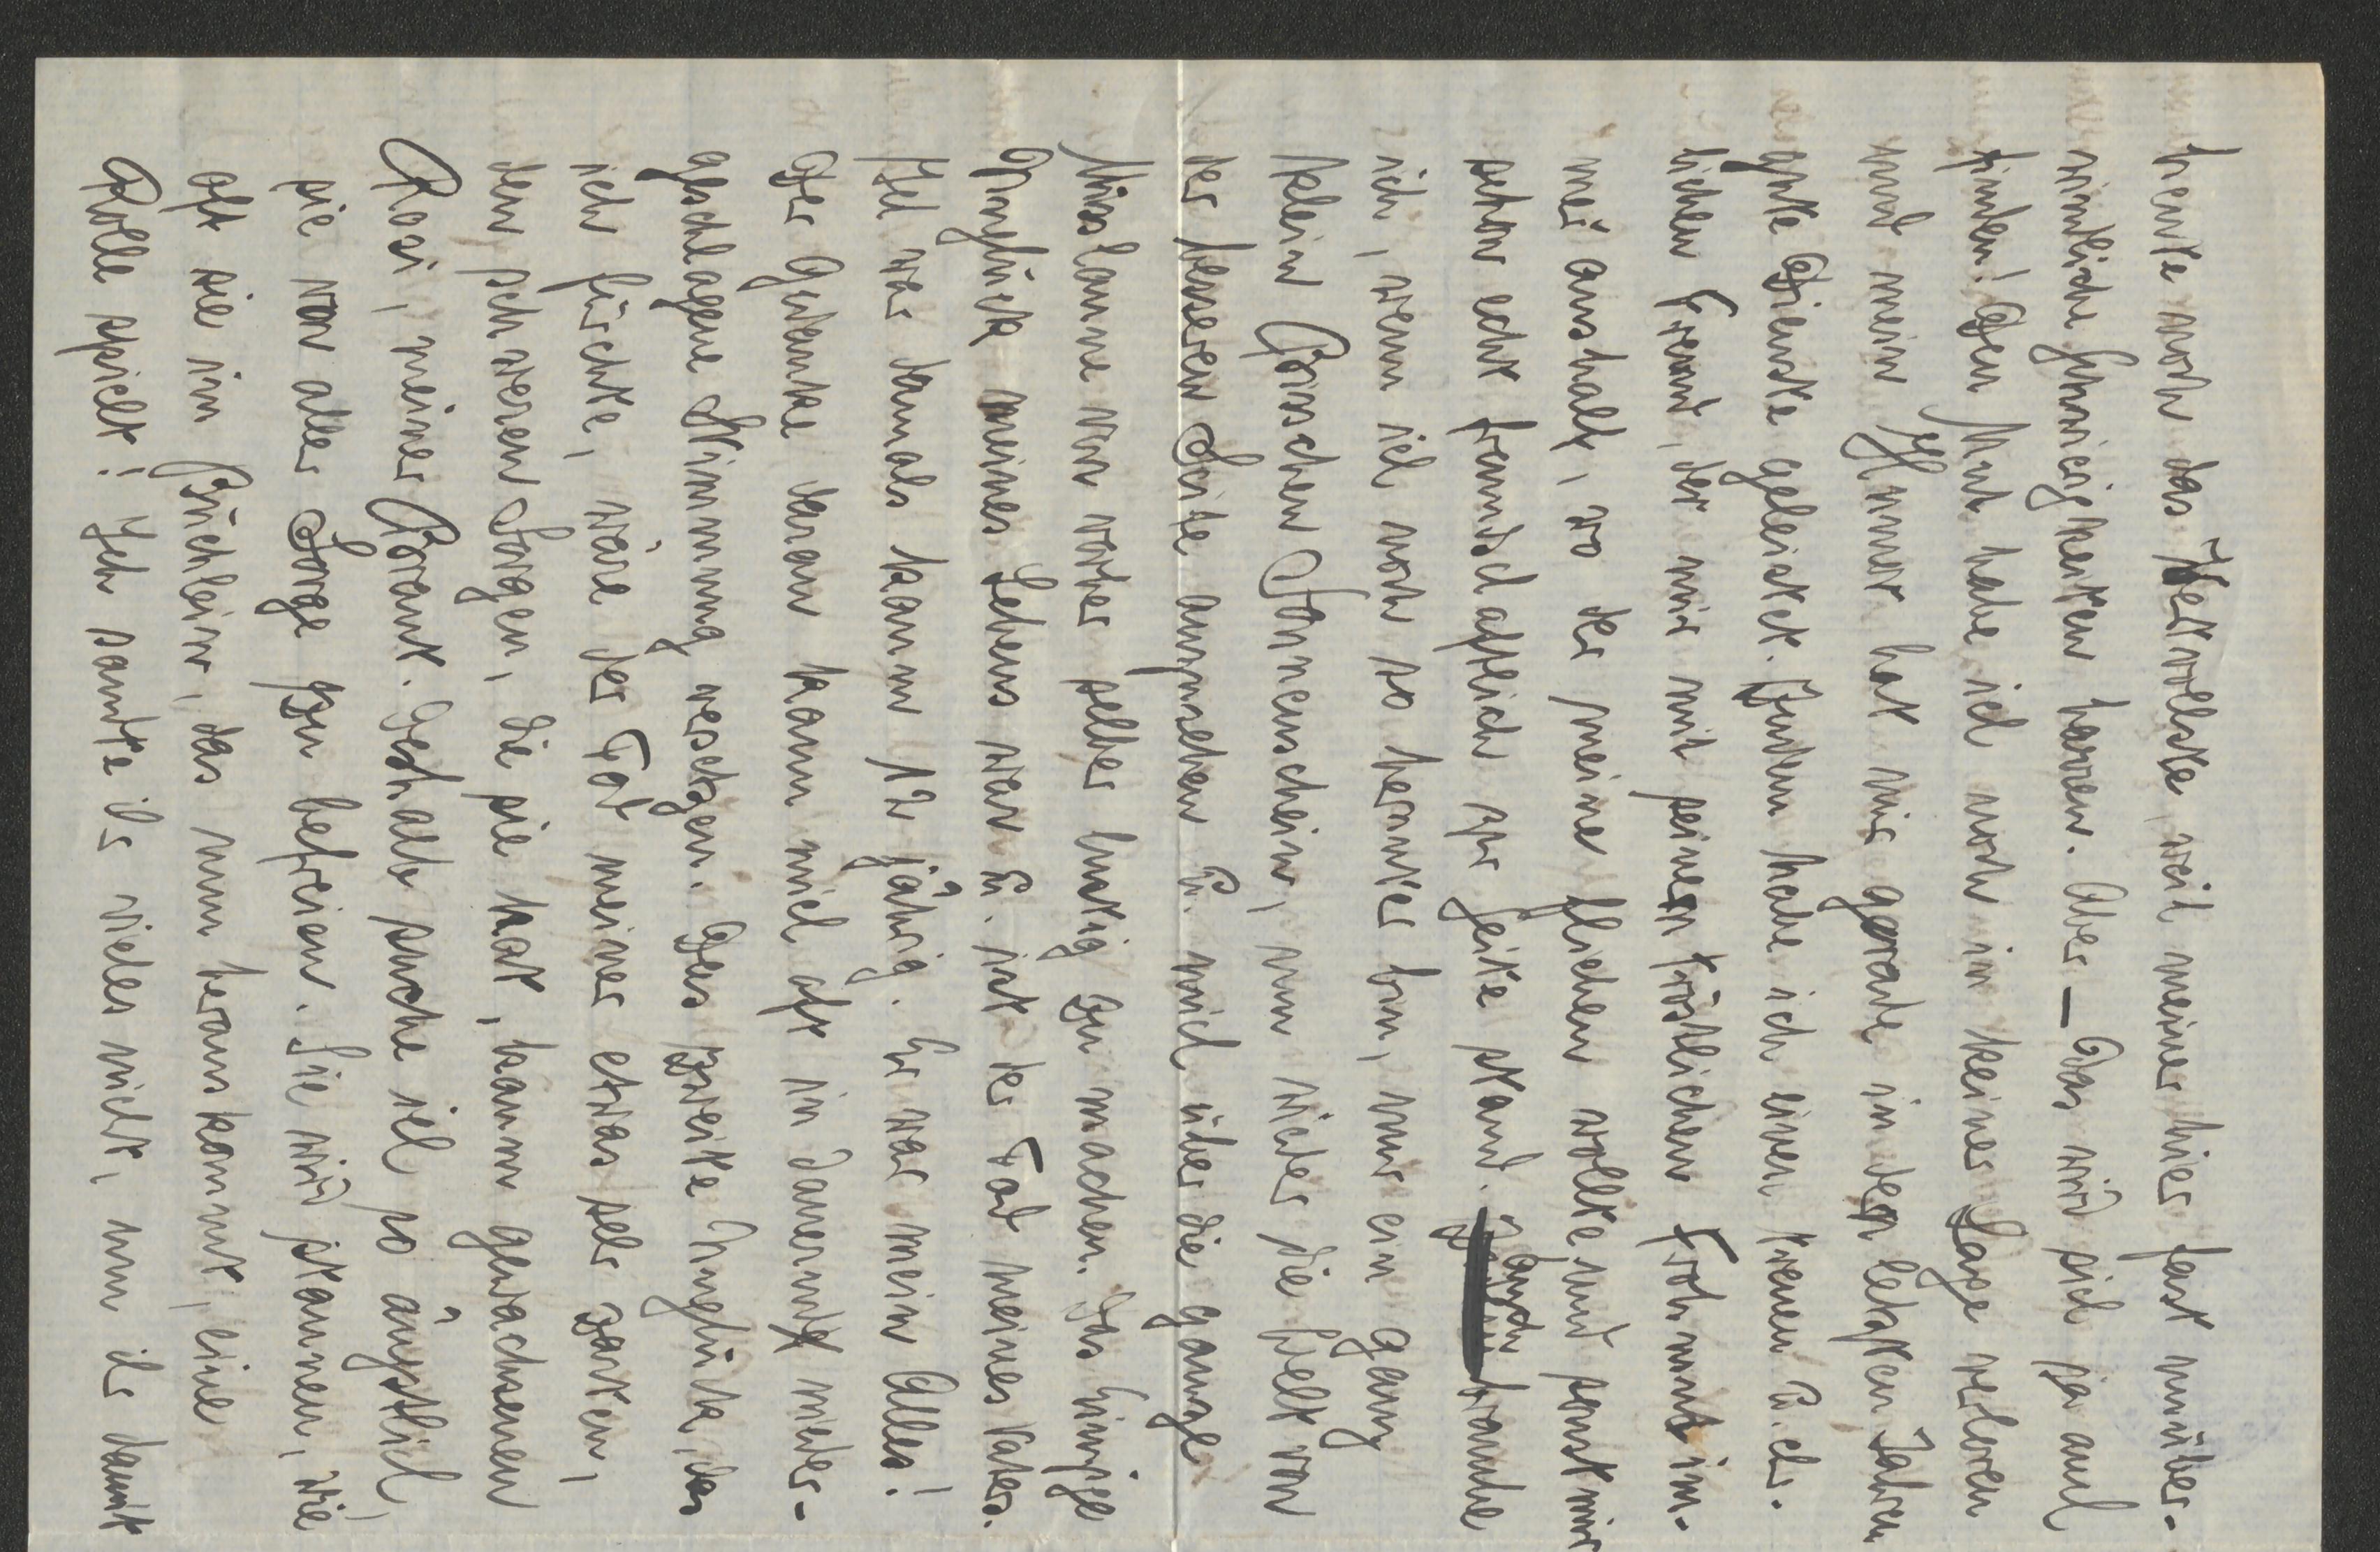 heute noch das Wertvollste, weil meiner hier fast unüber-
windliche Schwierigkeiten harren. Aber – Das wird sich ja auch
finden! Den Mut habe ich noch in keiner Lage verloren
und mein Humor hat mir gerade in den letzten Jahren
gute Dienste geleistet. Zudem habe ich einen treuen u. ehr-
lichen Freund, der mir mit seinem fröhlichen Frohmut im-
mer aushalf, wo der meine flichen wollte und sonst mir
schon echt freundschaftlich zur Seite stand. Zudem brauche
ich, wenn ich noch so herunter bin, nur ein ganz
klein bisschen Sonnenschein, um wieder die Welt von
der besseren Seite anzusehen u. mich über die ganze
Misslaune von vorher selber lustig zu machen. Das Einzige
Unglück meines Lebens war u. ist der Tod meines Vaters.
Ich war damals kaum 12 jährig. Er war mein Alles!
Der Gedanke daran kann mich oft in dauernde nieder-
geschlagene Stimmung versetzen. Das zweite Unglück, das
ich fürchte, wäre der Tod meiner etwas sehr zarten,
den schweren Sorgen, die sie hat, kaum gewachsenen
Rosi, meiner Braut. Deshalb suche ich so ängstlich,
sie von aller Sorge zu befreien. Sie wird staunen, wie
oft sie im Büchlein, das nun herauskommt, eine
Rolle spielt! Ich sandte ihr vieles nicht, um ihr damit